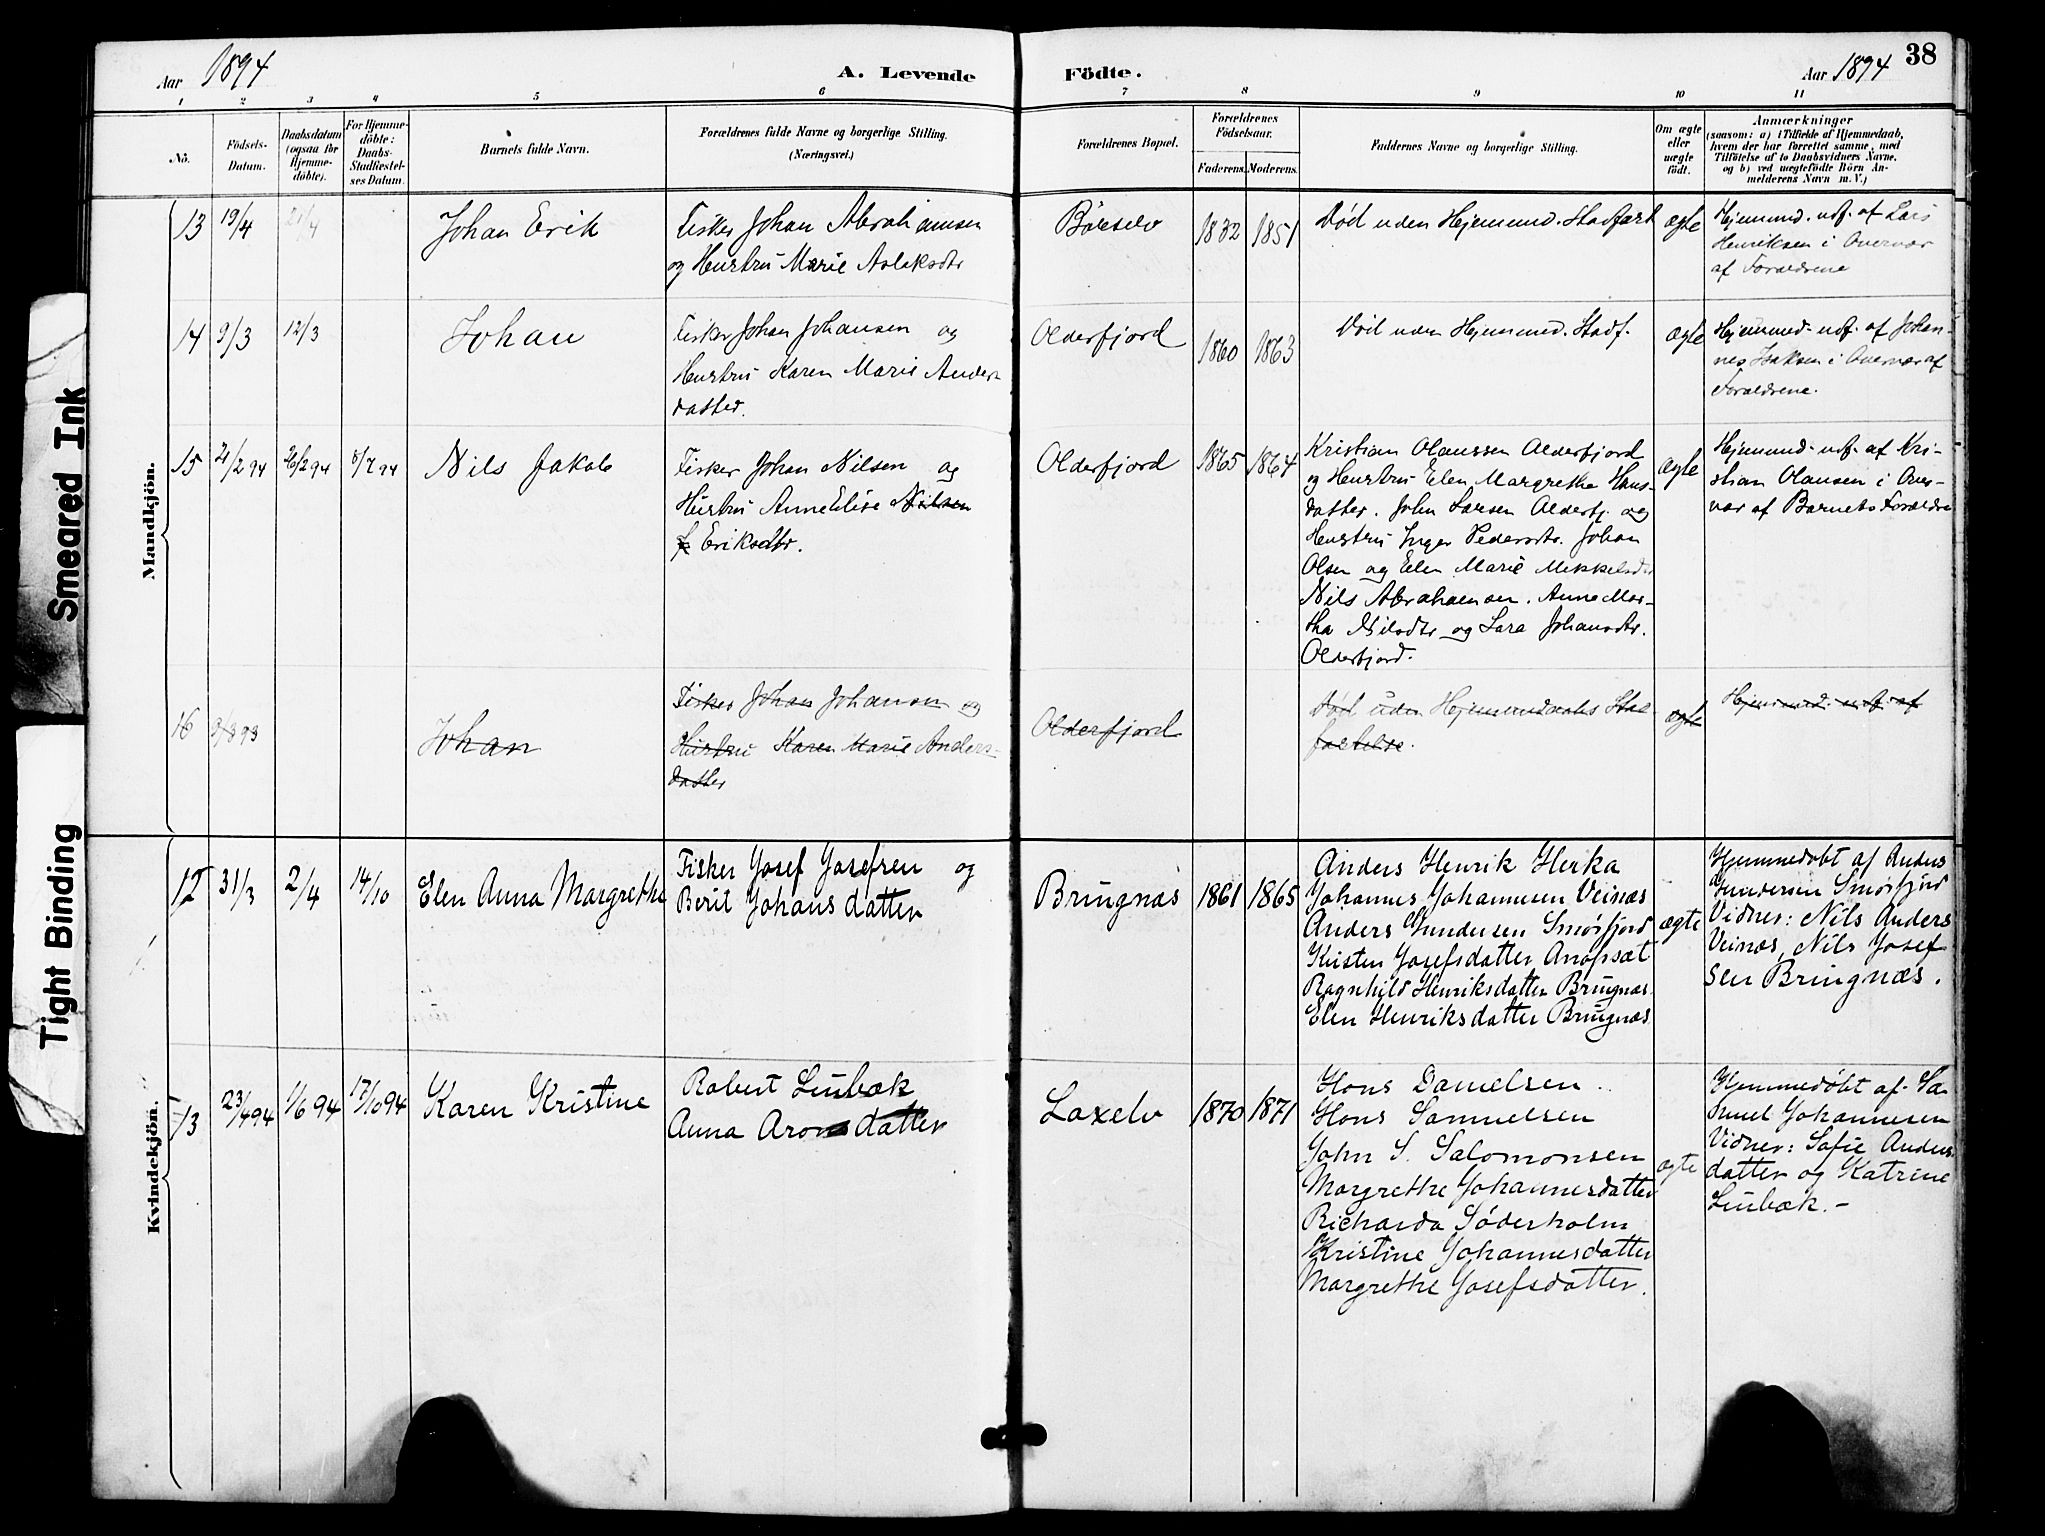 Aar 1894
A. Levende
Födte.
Aar 1894
38
1 2 3 4 5 6 7 8 9 10 11
No.
Födsels-
Datum.
Daabsdatum
(ogsaa for
Hjemme-
döbte).
For Hjemme-
döbte:
Daabs-
Stadfæstel-
ses Datum.
Barnets fulde Navn.
Forældrenes fulde Navne og borgerlige Stilling.
(Næringsvei.)
Forældrenes Bopæl.
Forældrenes
Födselsaar.
Faderens. Moderens.
Faddernes Navne og borgerlige Stilling.
Om ægte
eller
uægte
födt.
Anmærkninger
(saasom: a) i Tilfælde af Hjemmedaab,
hvem der har forrettet samme, med
Tilföielse af to Daabsvidners Navne.
og b) ved uægtefödte Börn An-
melderens Navn m. V.)
Mandkjön.
13 19/4 21/4
Johan Erik
Fisker Johan Abrahamsen
og Hustru Marie Aslaksdtr
Börselv
1832 1851
Död uden Hjemmed. Stadfæst
ægte
Hjemmed. udf. af Lars
Henriksen i Overvær
af Forældrene
14 9/3 12/3
Johan
Fisker Johan Johansen og
Hustru Karen Marie Anders
datter.
Olderfjord
1860 1863
Död uden Hjemmed. Stadf.
ægte
Hjemmed. udf. af Johan-
nes Isaksen i Overvær af
Forældrene.
15 21/2 94 26/2 94 8/7 94
Nils Jakob
Fisker Johan Nilsen og
Hustru Anne Elise Nilsen
f Eriksdtr.
Olderfjord
1865 1864
Kristian Olaussen Olderfjord
og Hustru Elen Margrethe Hans-
datter. John Larsen Olderfj. og
Hustru Inger Pedersdtr. Johan
Olsen og Elen Marie Mikkelsdtr
Nils Abrahamsen. Anne Mar-
tha Nilsdtr og Sara Johansdtr.
Olderfjord.
ægte
Hjemmed. udf. af Kri-
stian Olausen i Over-
vær af Barnets Forældre
16 9/3 93
Johan
Fisker Johan Johansen og
Hustru Karen Marie Anders-
datter
Olderfjord
Död uden Hjemmedaabs Stad-
fæstelse.
ægte
Hjemmed. udf. af
Kvindekjön.
12 31/3 2/4 14/10
Elen Anna Margrethe
Fisker Josef Josefsen og
Berit Johansdatter
Bringnæs
1861 1865
Anders Henrik Herka
Johannes Johannesen Veinæs
Anders Gundersen Smörfjord
Kristen Josefsdatter
Ragnhild Henriksdatter Bringnæs
Elen Henriksdatter Bringnæs
ægte
Hjemmedöbt af Anders
Gundersen Smörfjord
Vidner: Nils Anders
Veinæs, Nils Josef
sen Bringnæs.
13 23/4 94 1/6 94 17/10 94
Karen Kristine
Robert Liubæk
Anna Aronsdatter
Laxelv
1870 1871
Hans Danielsen
Hans Samuelsen
John S. Salomonsen
Margrethe Johannesdatter
Richarda Söderholm
Kristine Johannesdatter
Margrethe Josefsdatter.
ægte
Hjemmedöbt af Sa
muel Johannesen
Vidner: Sofie Anders
datter og Katrine
Liubæk. -
Smeared Ink
Tight Binding